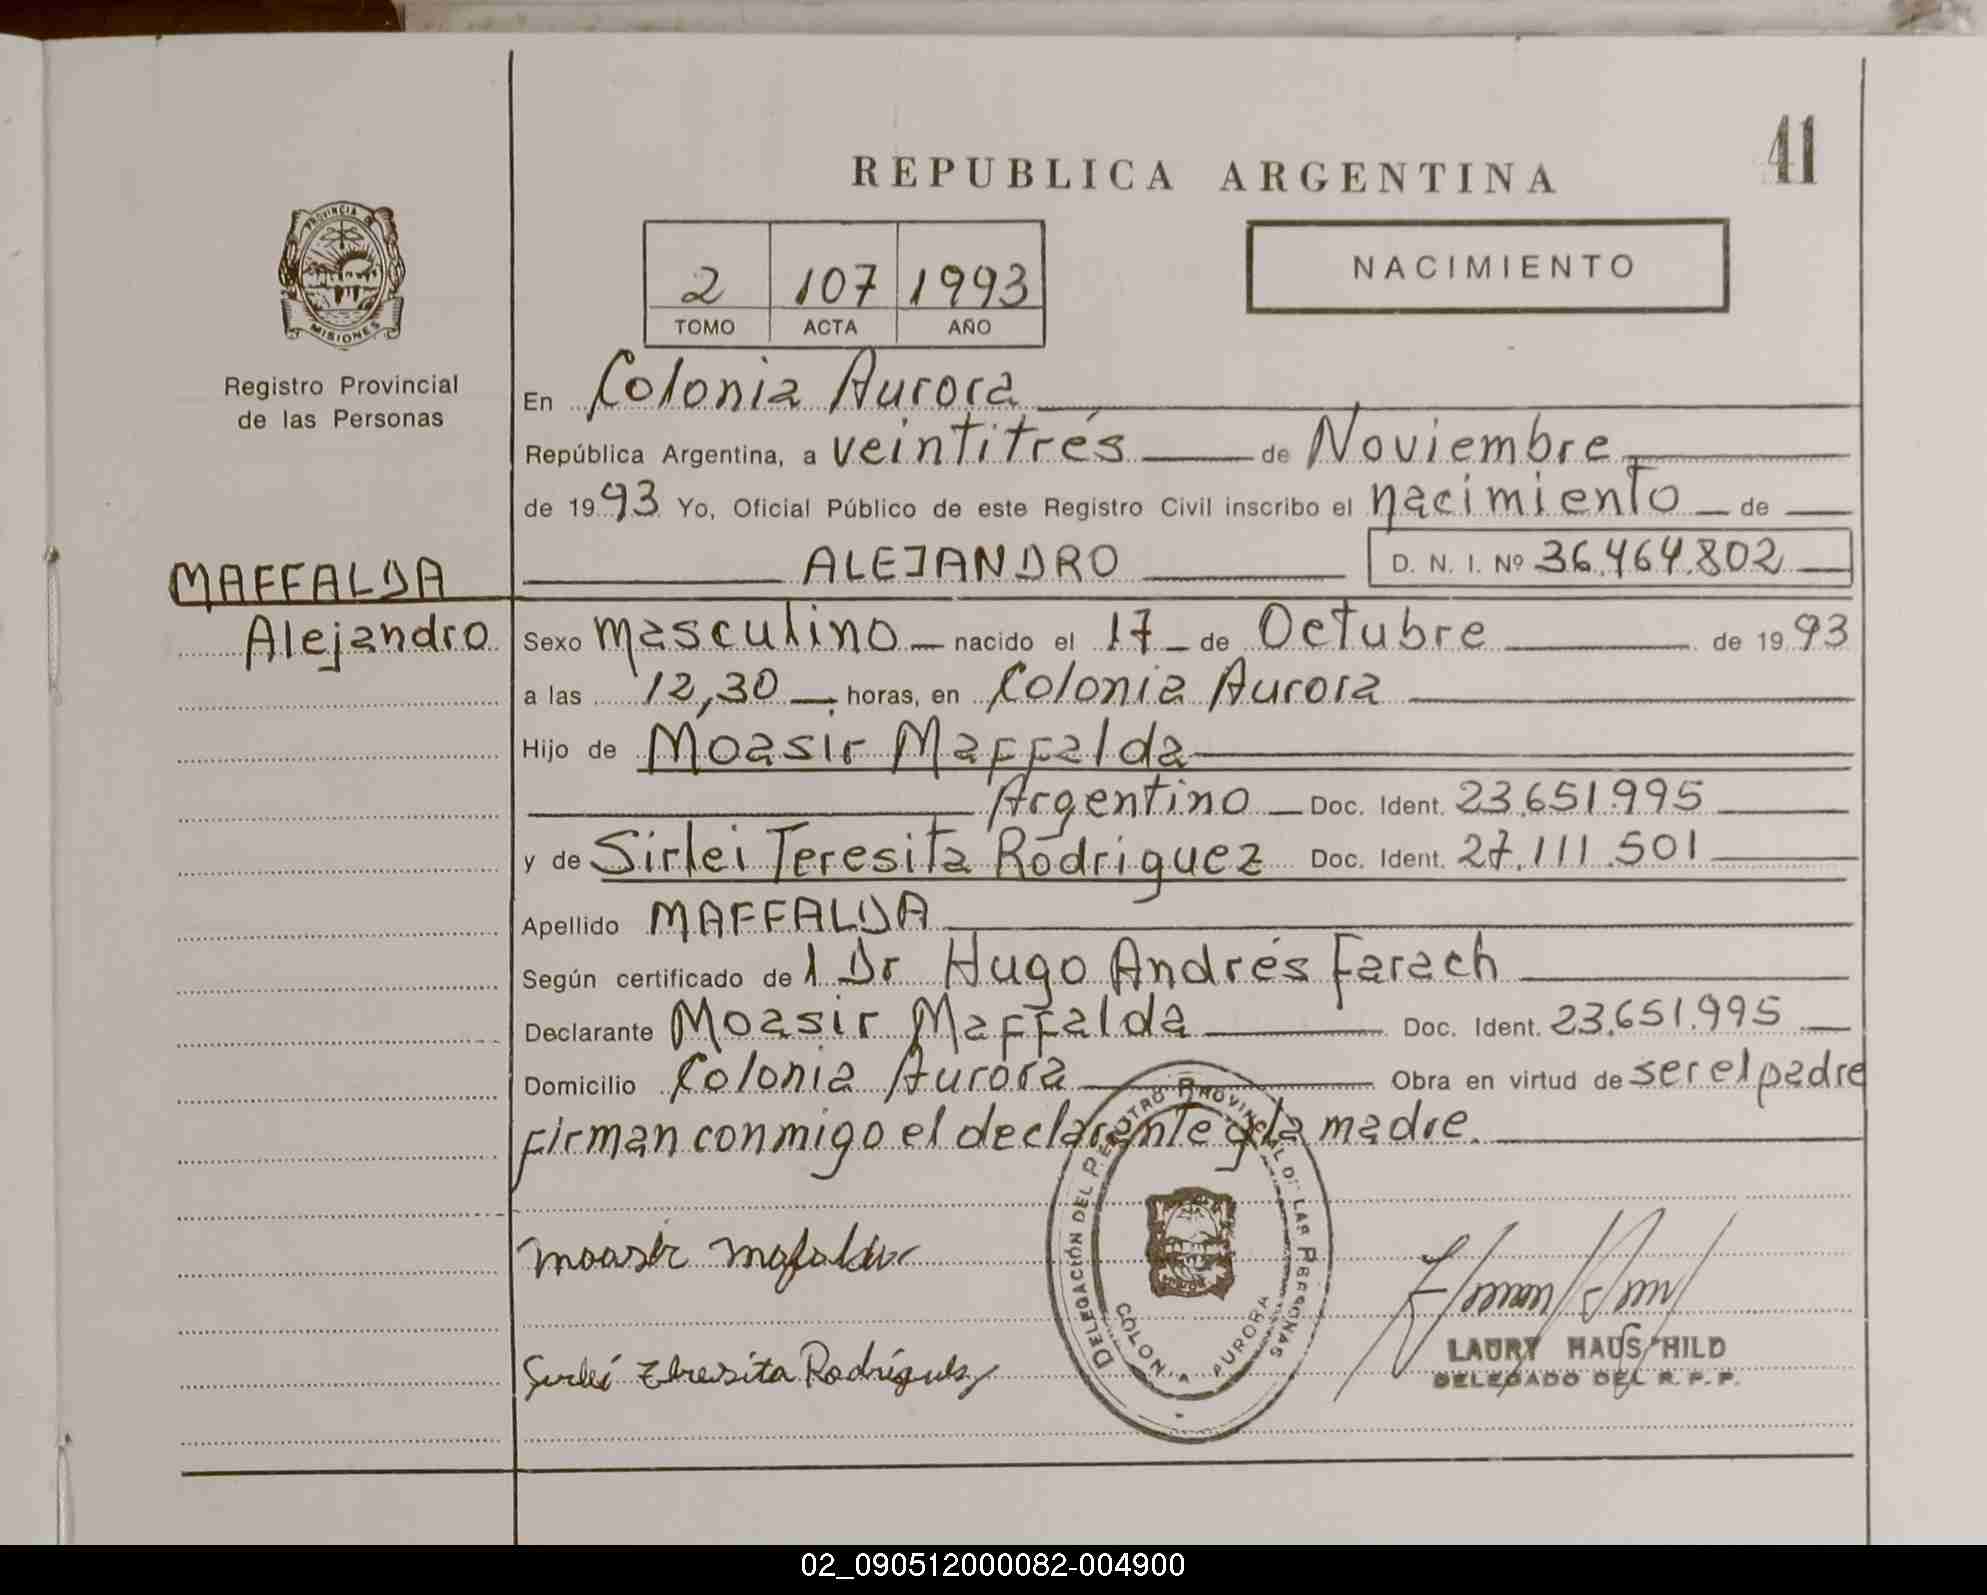 REPUBLICA ARGENTINA
41
PROVINCIA DE
MISIONES
Registro Provincial
de las Personas
2 107 1993
TOMO ACTA AÑO
NACIMIENTO
En Colonia Aurora
República Argentina, a veintitrés de Noviembre
de 1993 Yo, Oficial Público de este Registro Civil inscribo el nacimiento de
ALEJANDRO D. N. I. Nº 36.464.802
MAFFALDA
Alejandro
Sexo masculino nacido el 17 de Octubre de 1993
a las 12,30 horas, en Colonia Aurora
Hijo de Moasir Maffalda
Argentino Doc. Ident. 23.651.995
y de Sirlei Teresita Rodriguez Doc. Ident. 27.111.501
Apellido MAFFALDA
Según certificado de l Dr Hugo Andrés Farach
Declarante Moasir Maffalda Doc. Ident. 23.651.995
Domicilio Colonia Aurora Obra en virtud de ser el padre
firman conmigo el declarante y la madre.
DELEGACIÓN DEL REGISTRO PROVINCIAL DE LAS PERSONAS
COLONIA AURORA
Moasir Mafalda
Sirlei Teresita Rodriguez
LAURY HAUS HILD
DELEGADO DEL R. P. P.
02_090512000082-004900